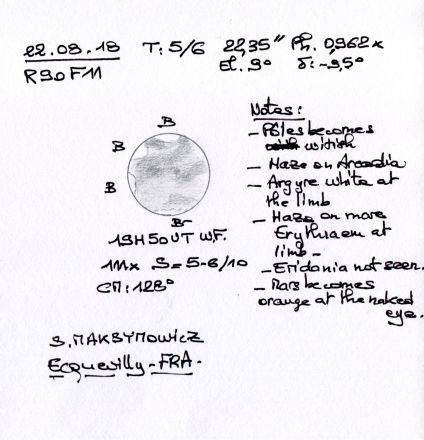 22.08.18 T: 5/6 22,35" Ph. 0,962 x
R90FM El. 9° δ: -,95°
Notes:
B
- Pôles becomes
witish
B
- Haze on Arcadia
- Argyre white at
the limb
B
- Haze on mare
Erythraem at
limb -
B
19H50UT W.F.
111x S=5-6/10
CM: 128°
- Eridania not seen.
- Mars becomes
orange at the naked
eye.
S. MAKSYMOWICZ
Ecquevilly - FRA.